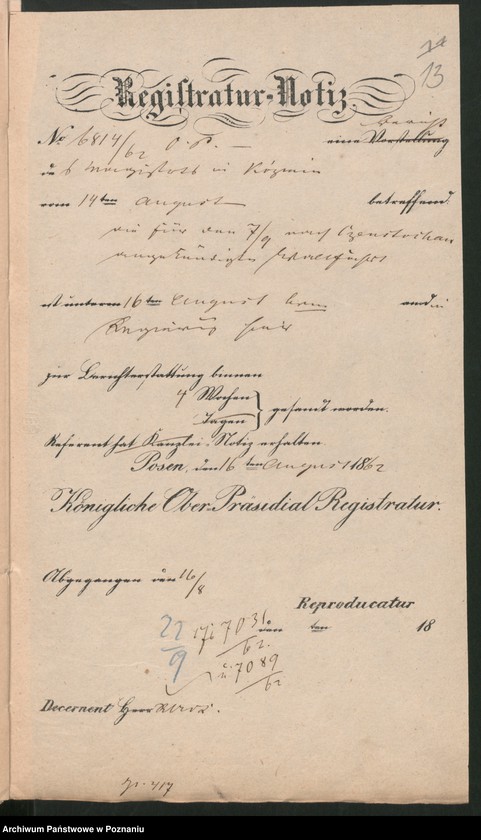 13
Registratur-Notiz.
Bericht
No 6814/62 O. P. — eine Vorstellung
des Magistrats in Kozmin
vom 14ten August betreffend
die für den 7/9 nach Czenstochau
angekündigte Wallfahrt
ist unterm 16ten August an
Regierung hier
zur Berichterstattung binnen
4 Wochen
Tagen } gesandt worden.
Referent hat Kanzlei-Notiz erhalten
Posen, den 16ten August 1862
Königliche Ober-Präsidial Registratur.
Abgegangen den 16/8
Reproducatur
22/9 7031/62. den ten 18
u. 7089/62
Decernent Herr
Archiwum Państwowe w Poznaniu